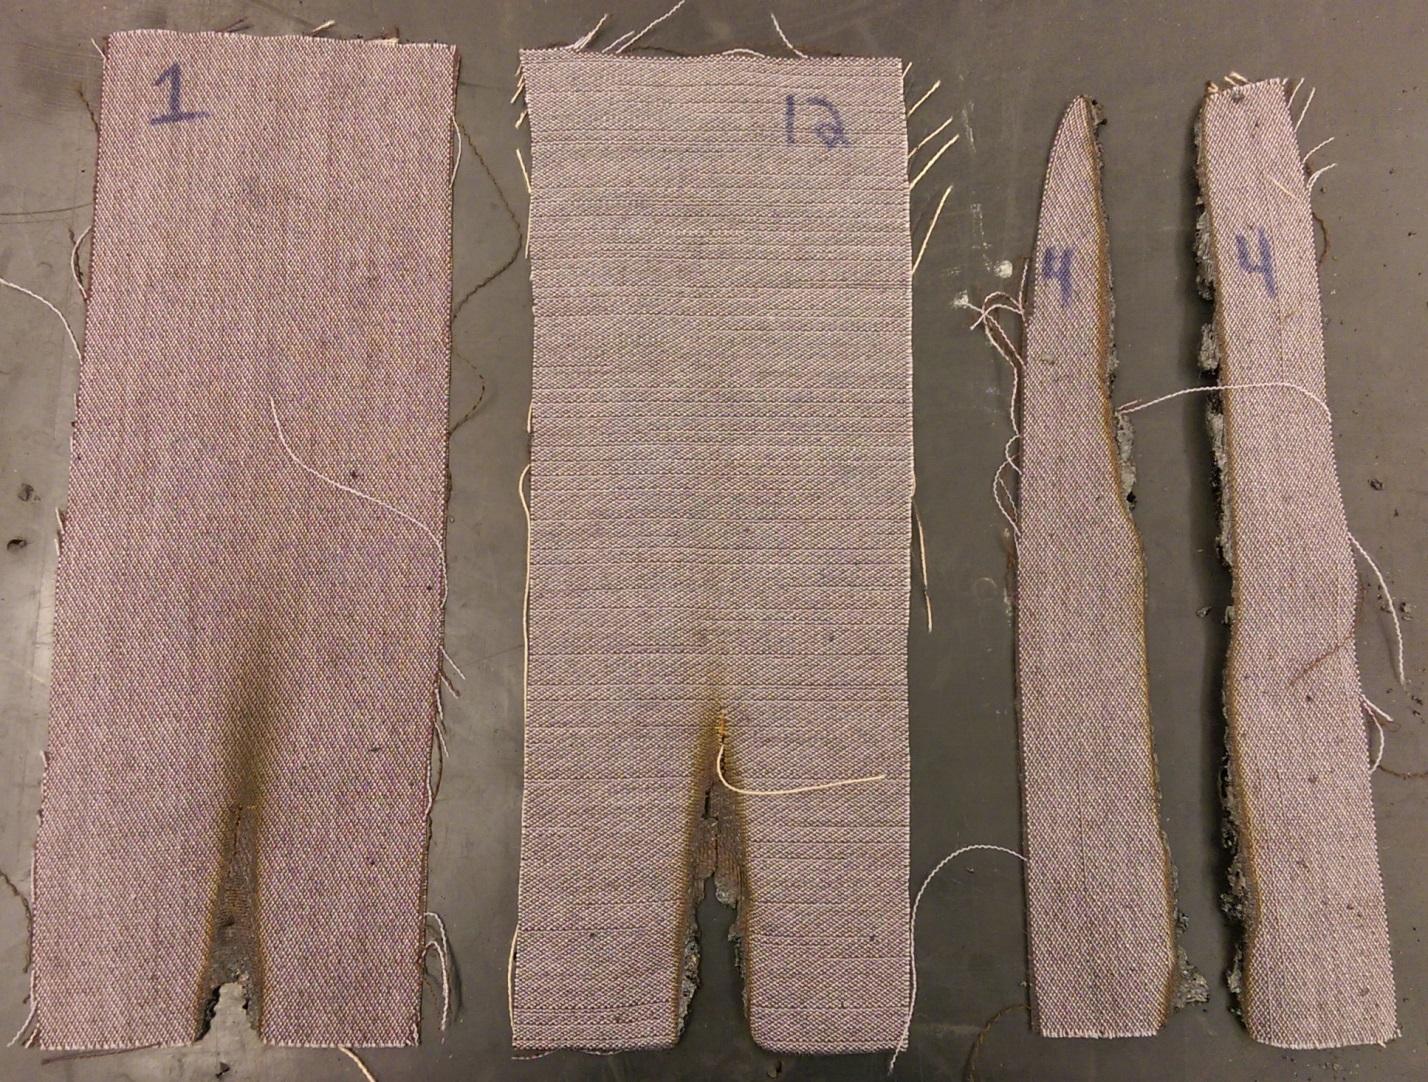 1
12
4
4